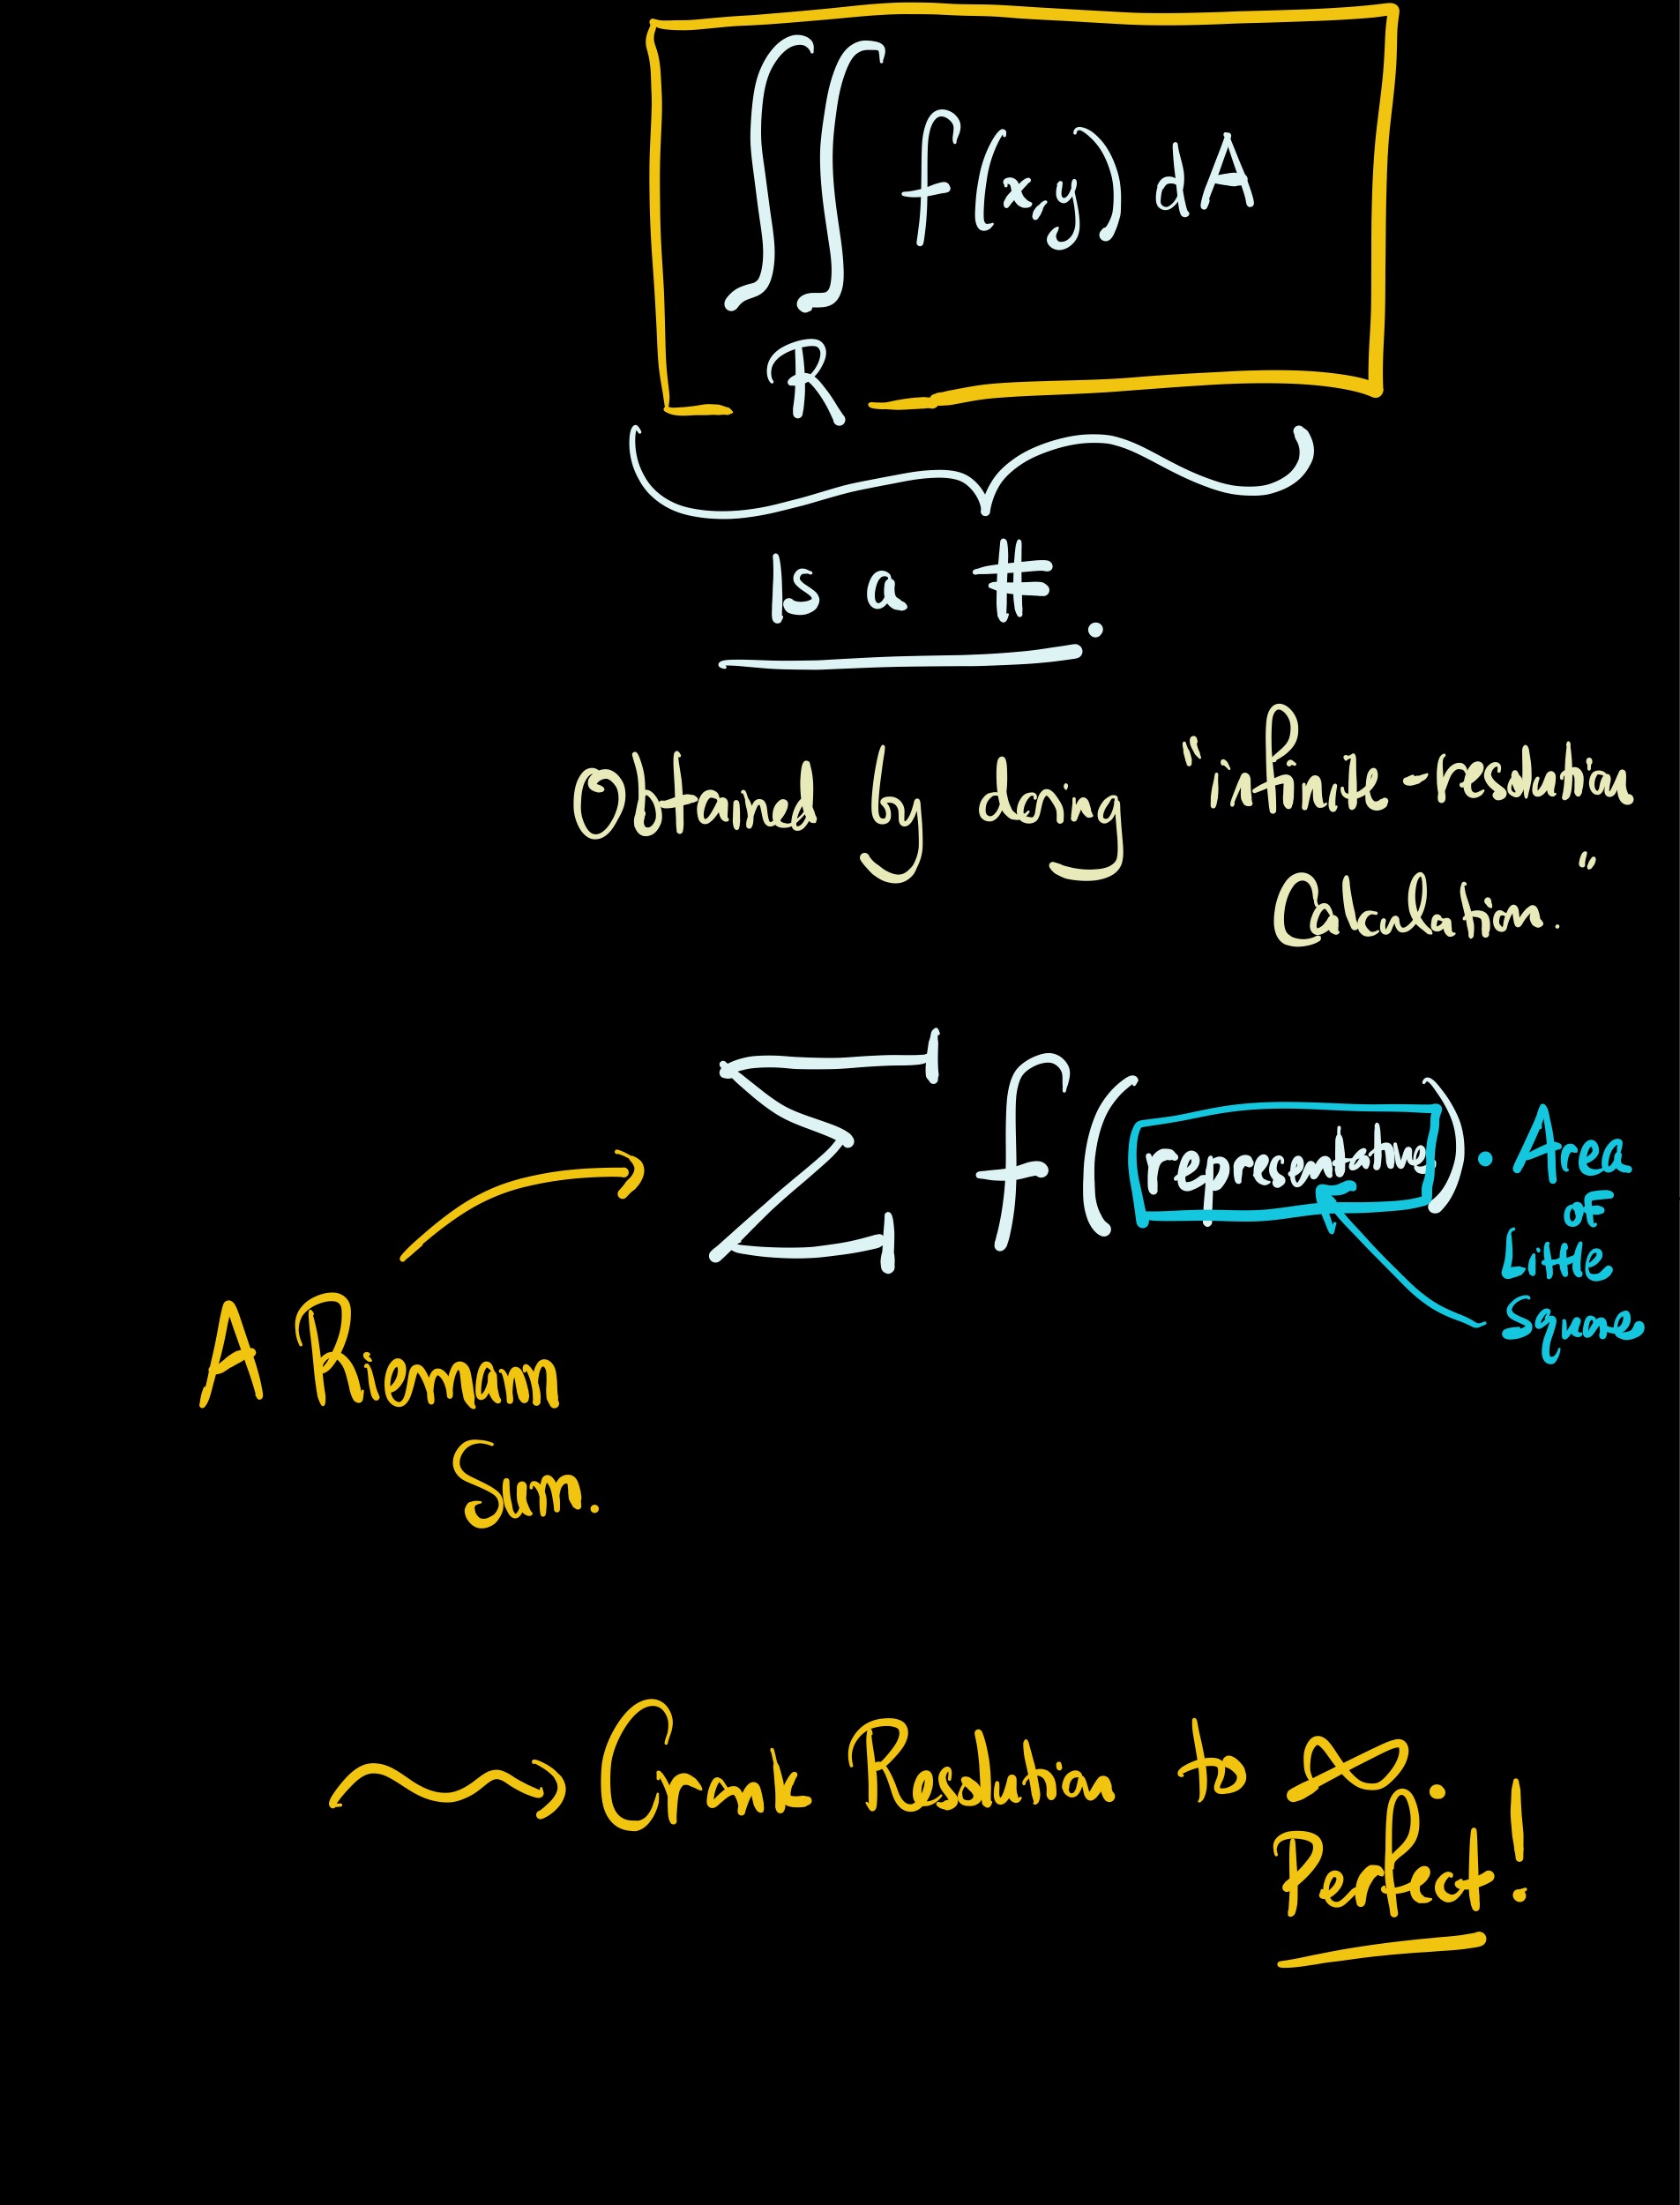 ∬ f(x,y) dA
R
Is a #.
Obtained by doing "infinite-resolution
Calculation."
Σ f(representative) · Area
of
Little
Square
A Riemann
Sum.
Crank Resolution to ∞.
Perfect!